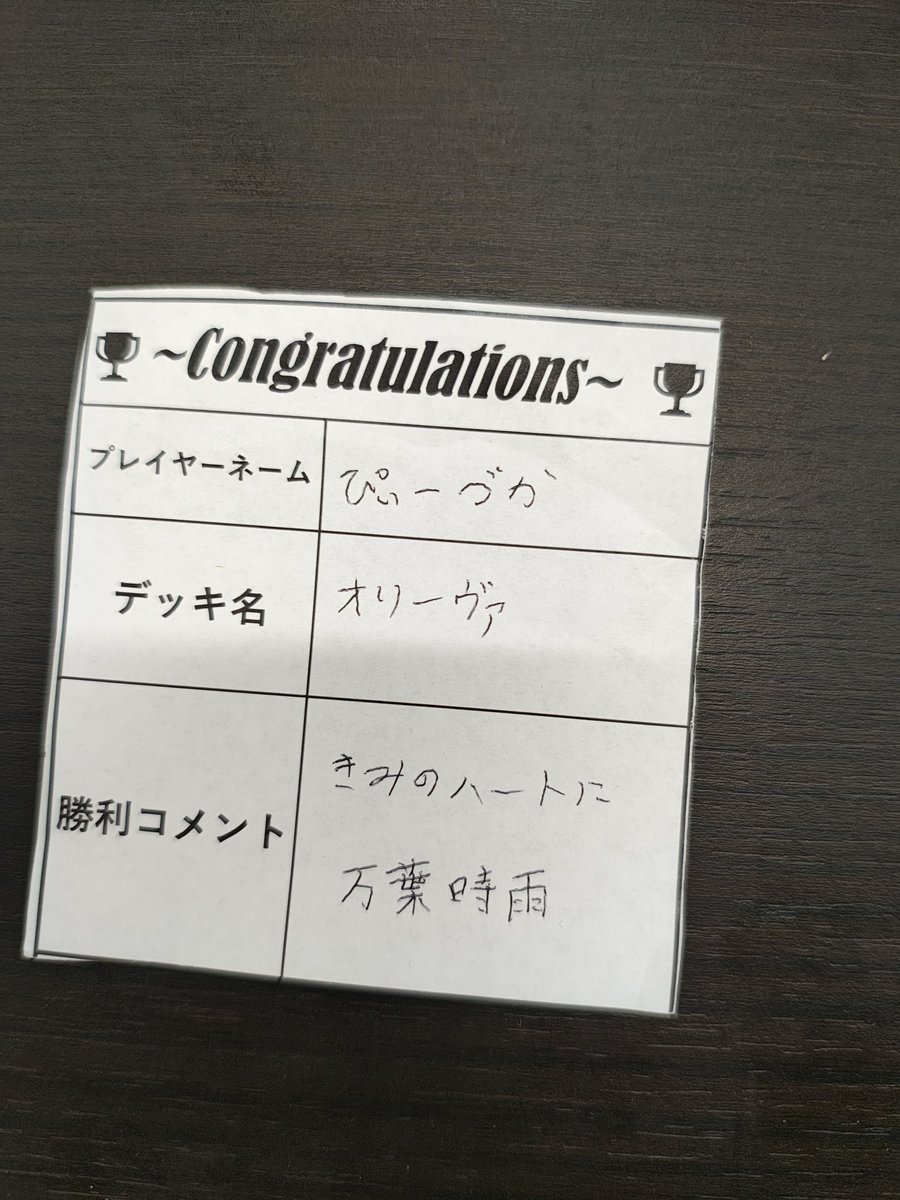 ~Congratulations~
プレイヤーネーム
ぴぃーづか
デッキ名
オリーヴァ
勝利コメント
きみのハートに
万葉時雨